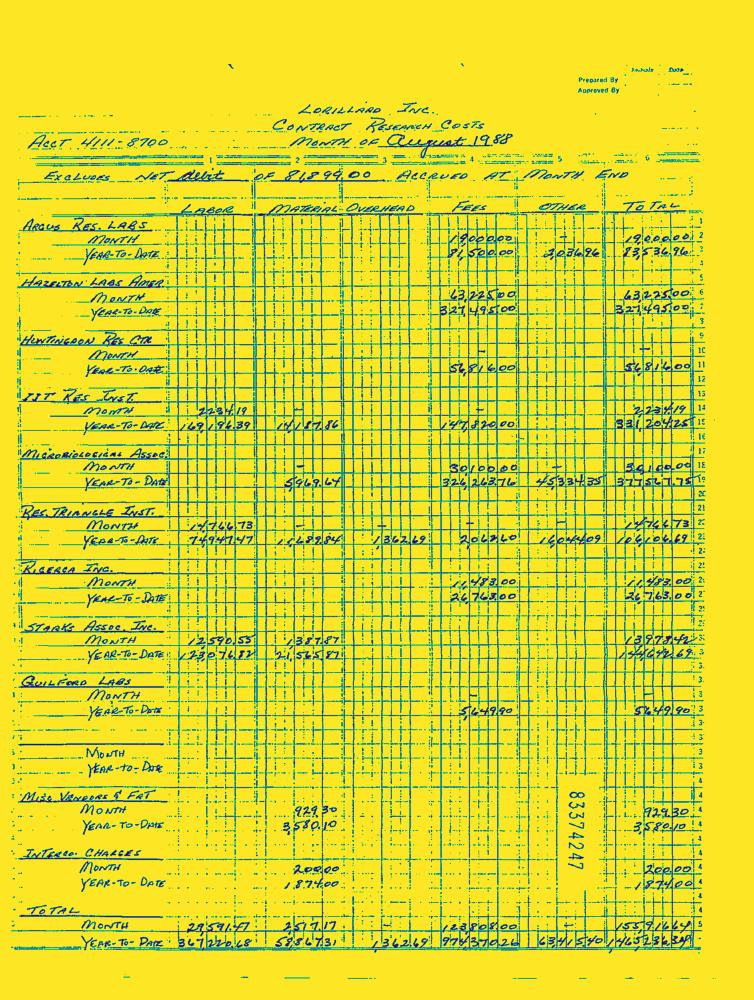 Initials Date
Prepared By
Approved By
LORILLARD INC.
CONTRACT RESEARCH COSTS
ACCT 4111-8700 MONTH OF August 1988
1 2 3 4 5 6
EXCLUDES NET debit OF 81,899.00 ACCRUED AT MONTH END
LABOR MATERIAL OVERHEAD FEES OTHER TOTAL
ARGUS RES. LABS
MONTH 19,000.00 - 19,000.00
YEAR-TO-DATE 81,500.00 2,036.96 83,536.96
HAZELTON LABS AMER.
MONTH 63,225.00 63,225.00
YEAR-TO-DATE 327,495.00 327,495.00
HUNTINGDON RES CTR
MONTH - -
YEAR-TO-DATE 56,816.00 56,816.00
IIT RES INST.
MONTH 2,234.19 - - 2,234.19
YEAR-TO-DATE 169,196.39 14,187.86 147,820.00 331,204.25
MICROBIOLOGICAL ASSOC.
MONTH - 30,100.00 - 30,100.00
YEAR-TO-DATE 5,969.64 326,263.76 45,334.35 377,567.75
RES. TRIANGLE INST.
MONTH 14,766.73 - - - - 14,766.73
YEAR-TO-DATE 74,947.47 11,689.84 1,362.69 2,062.60 16,044.09 106,106.69
RICERCA INC.
MONTH 11,483.00 11,483.00
YEAR-TO-DATE 26,763.00 26,763.00
STARKS ASSOC. INC.
MONTH 12,590.55 1,387.87 13,978.42
YEAR-TO-DATE 123,076.82 21,565.87 144,642.69
GUILFORD LABS
MONTH - -
YEAR-TO-DATE 5,649.90 5,649.90
MONTH
YEAR-TO-DATE
MISC VENDORS & FRT
MONTH 929.30 929.30
YEAR-TO-DATE 3,580.10 3,580.10
INTERCO. CHARGES
MONTH 200.00 200.00
YEAR-TO-DATE 1,874.00 1,874.00
TOTAL
MONTH 29,591.47 2,517.17 - 123,808.00 - 155,916.64
YEAR-TO-DATE 367,220.68 58,867.31 1,362.69 974,370.26 63,415.40 1,465,236.34
83374247